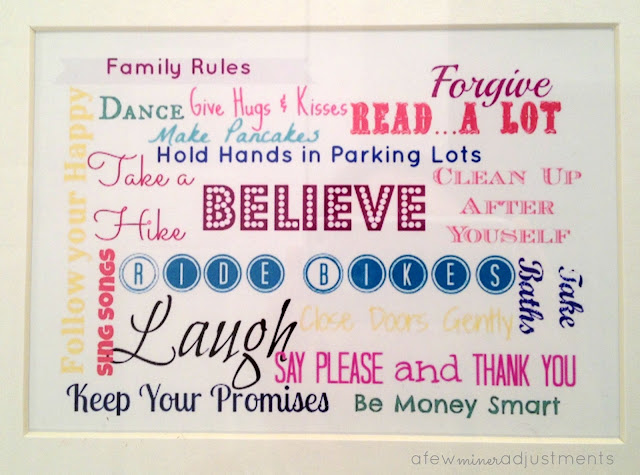 Family Rules
Forgive
Follow your Happy
DANCE
Give Hugs & Kisses
READ...A LOT
Make Pancakes
Hold Hands in Parking Lots
Take a
Hike
BELIEVE
CLEAN UP
AFTER
YOUSELF
SING SONGS
RIDE BIKES
Take
Baths
Laugh
Close Doors Gently
SAY PLEASE and THANK YOU
Keep Your Promises
Be Money Smart
afewmineradjustments